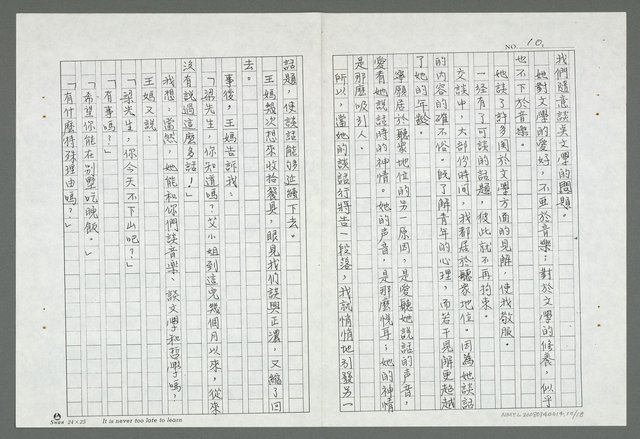 NO. 10.
我們隨意談吳文學的問題。
她對文學的愛好，不亞於音樂；對於文學的修養，似乎
也不下於音樂。
她談了許多関於文學方面的見解，使我敬服。
一經有了可談的話題，彼此就不再拘束。
交談中，大部份時间，我都居於聽衆地位。因為她談話
的内容的確不俗。既了解青年的心理，而若干見解更超越
了她的年齡。
寧願居於聽衆地位的另一原因，是愛聽她說話的声音，
愛看她說話時的神情。她的声音，是那麼悅耳；她的神情
是那麼吸引人。
所以，當她的談話行將告一段落，我就悄悄地引發另一
話題，使談話能够延續下去。
王媽幾次想來收拾餐具，眼見我們談興正濃，又縮了回
去。
事後，王媽告訴我：
「梁先生，你知道嗎？艾小姐到這兒幾個月以來，從來
沒有說過這麼多話！」
我想：當然，她能和你們談音樂、談文學和哲學嗎？
王媽又說：
「梁先生，你今天不下山吧？」
「有事嗎？」
「希望你能在別墅吃晚飯。」
「有什麼特殊理由嗎？」
Swan 24×25 It is never too late to learn
NMTL20080140414,10/18